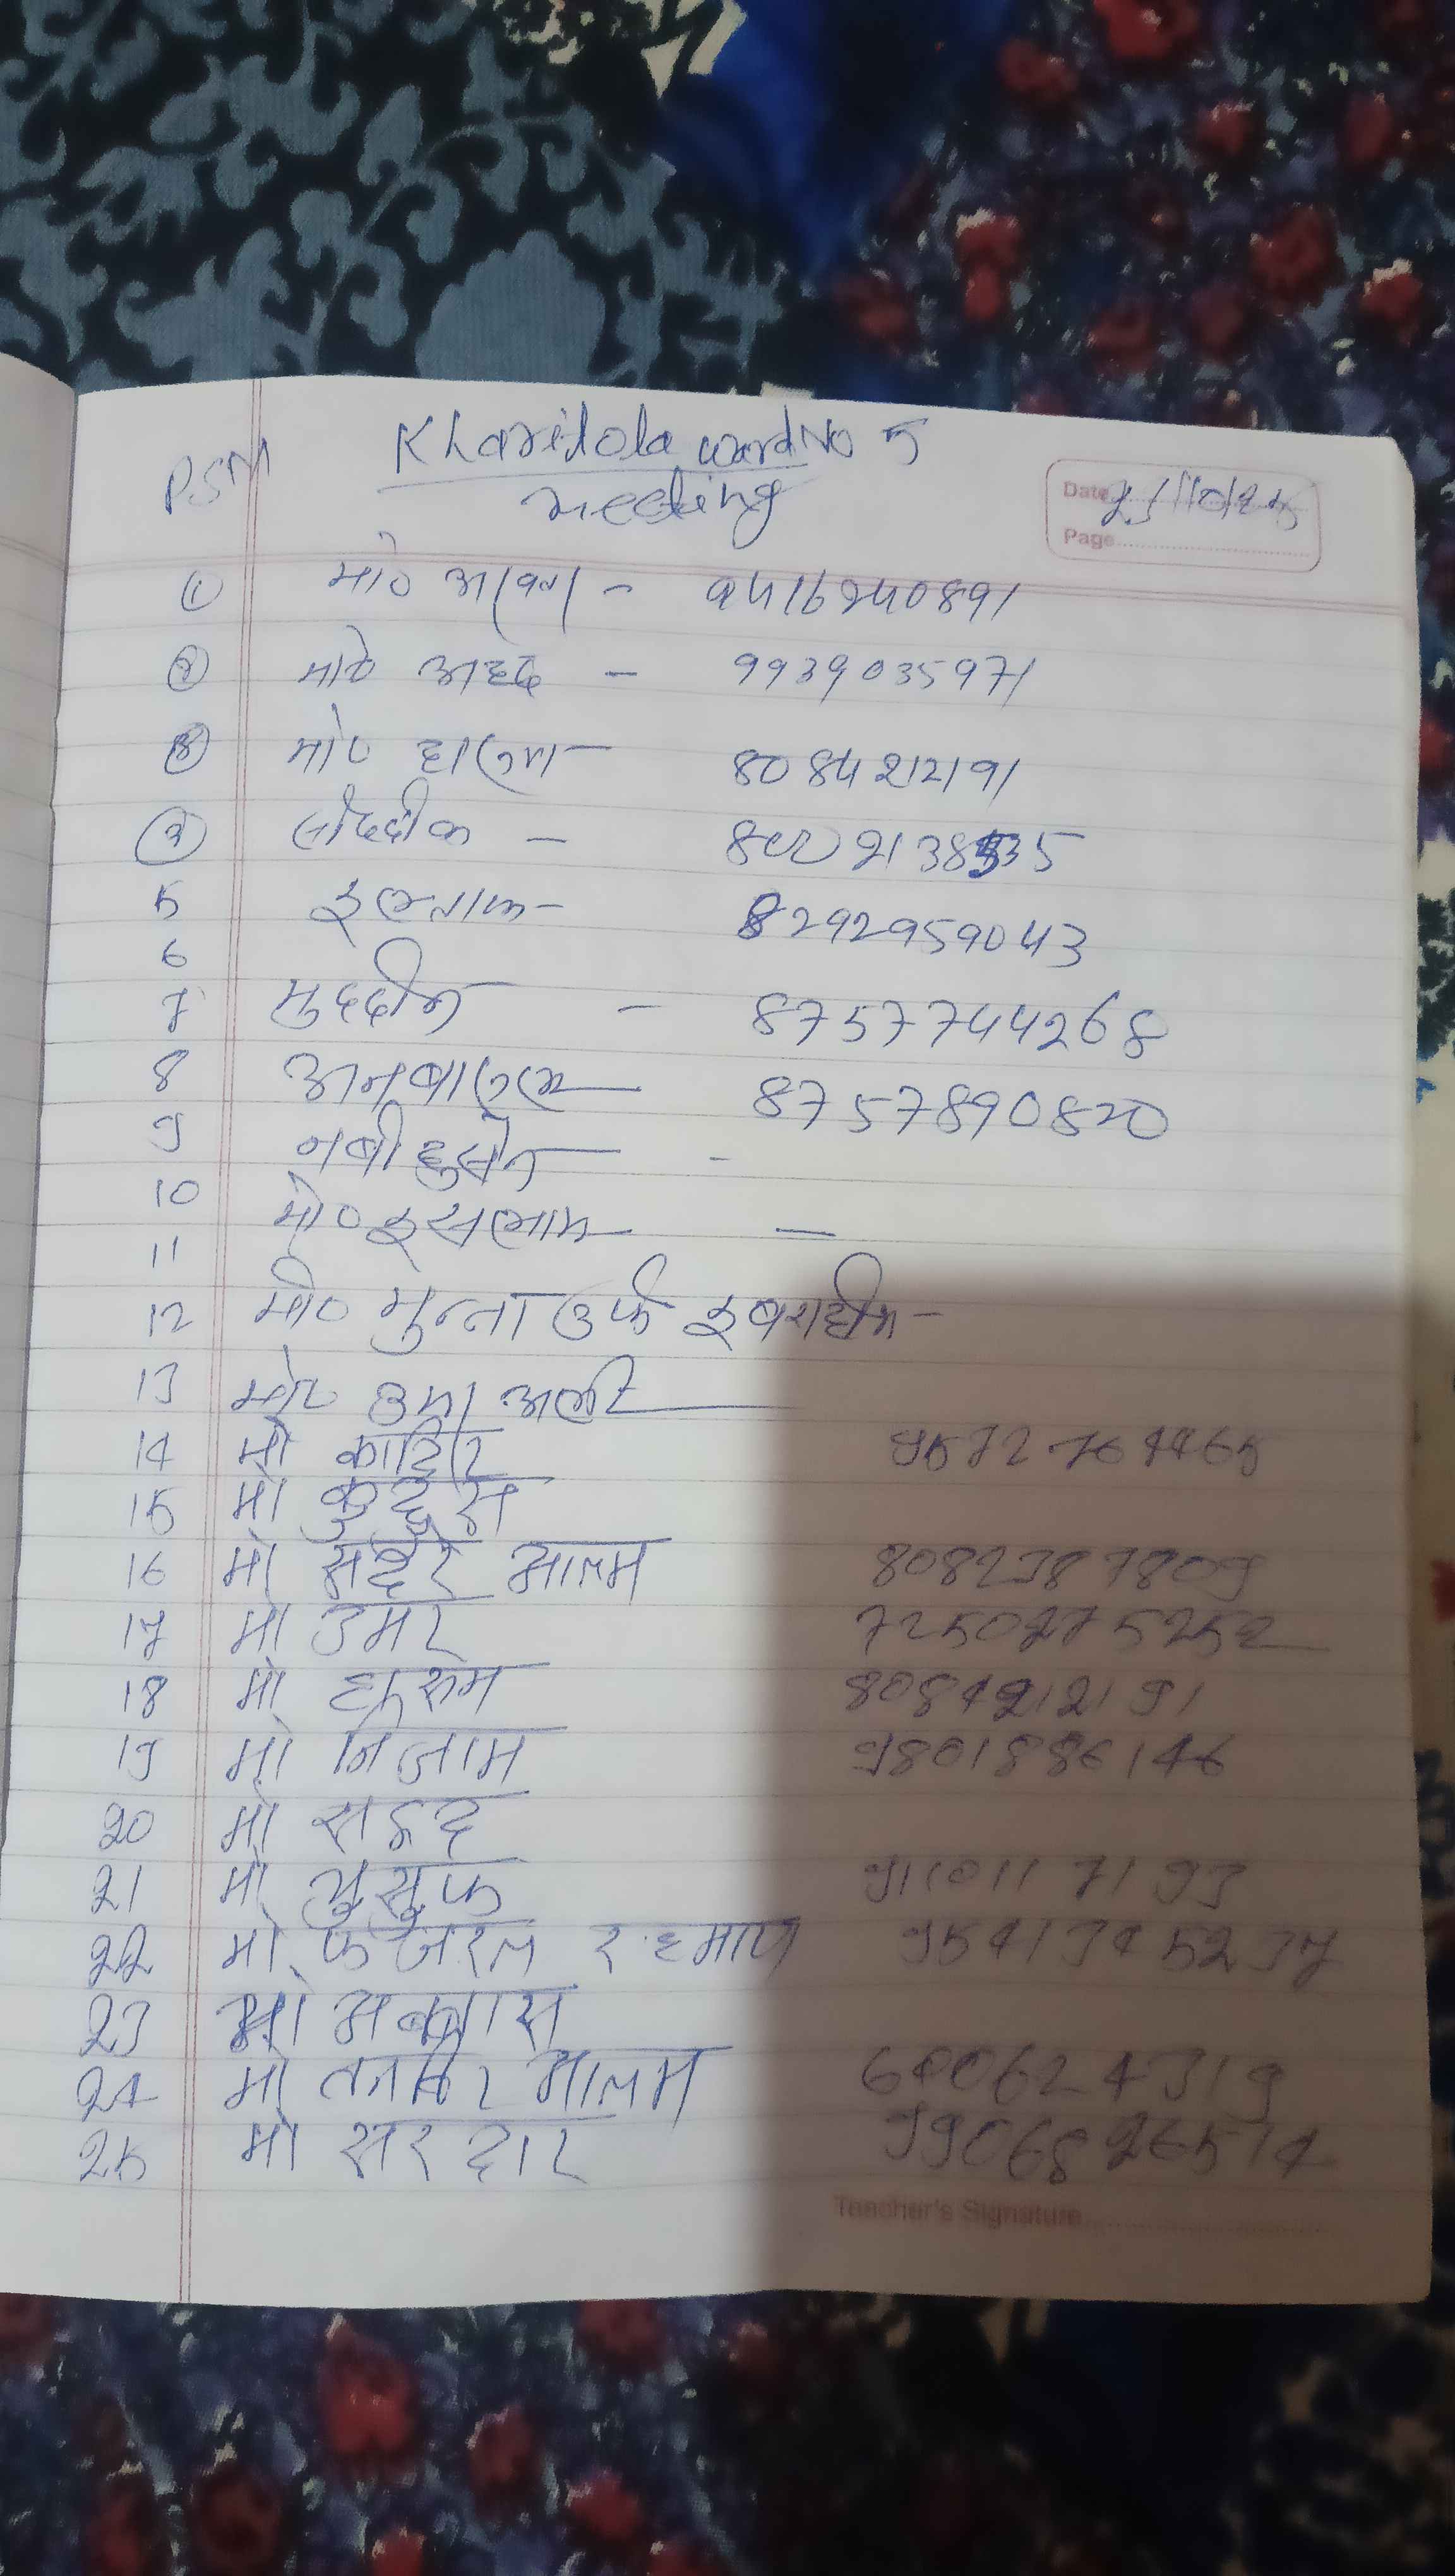 PSM Kharitola ward No 5
meeting
Date 25/10/25
Page
① मो० - 9416240891
② मो० अहद - 9939035971
मो० हारुन - 8084212191
③ - 8002138535
5 - 8292959043
6
7 मुददीन - 8757744268
8 8757890820
9 नबी हुसेन -
10 मो० इसलाम -
11
12 मो० मुन्ना उर्फ इबराहीम -
13 मो० अली
14 मो कादिर 9572764465
15 मो कुद्दुस
16 मो सद्दरे आलम 8082387809
17 मो उमर 7250275252
18 मो हारुन 8084212191
19 मो निजाम 9801886146
20 मो
21 मो युसुफ 9110117193
22 मो फजरल रहमान 9541345237
23 मो अब्बास
24 मो आलम 600624319
25 मो सरदार 9906826514
Teacher's Signature